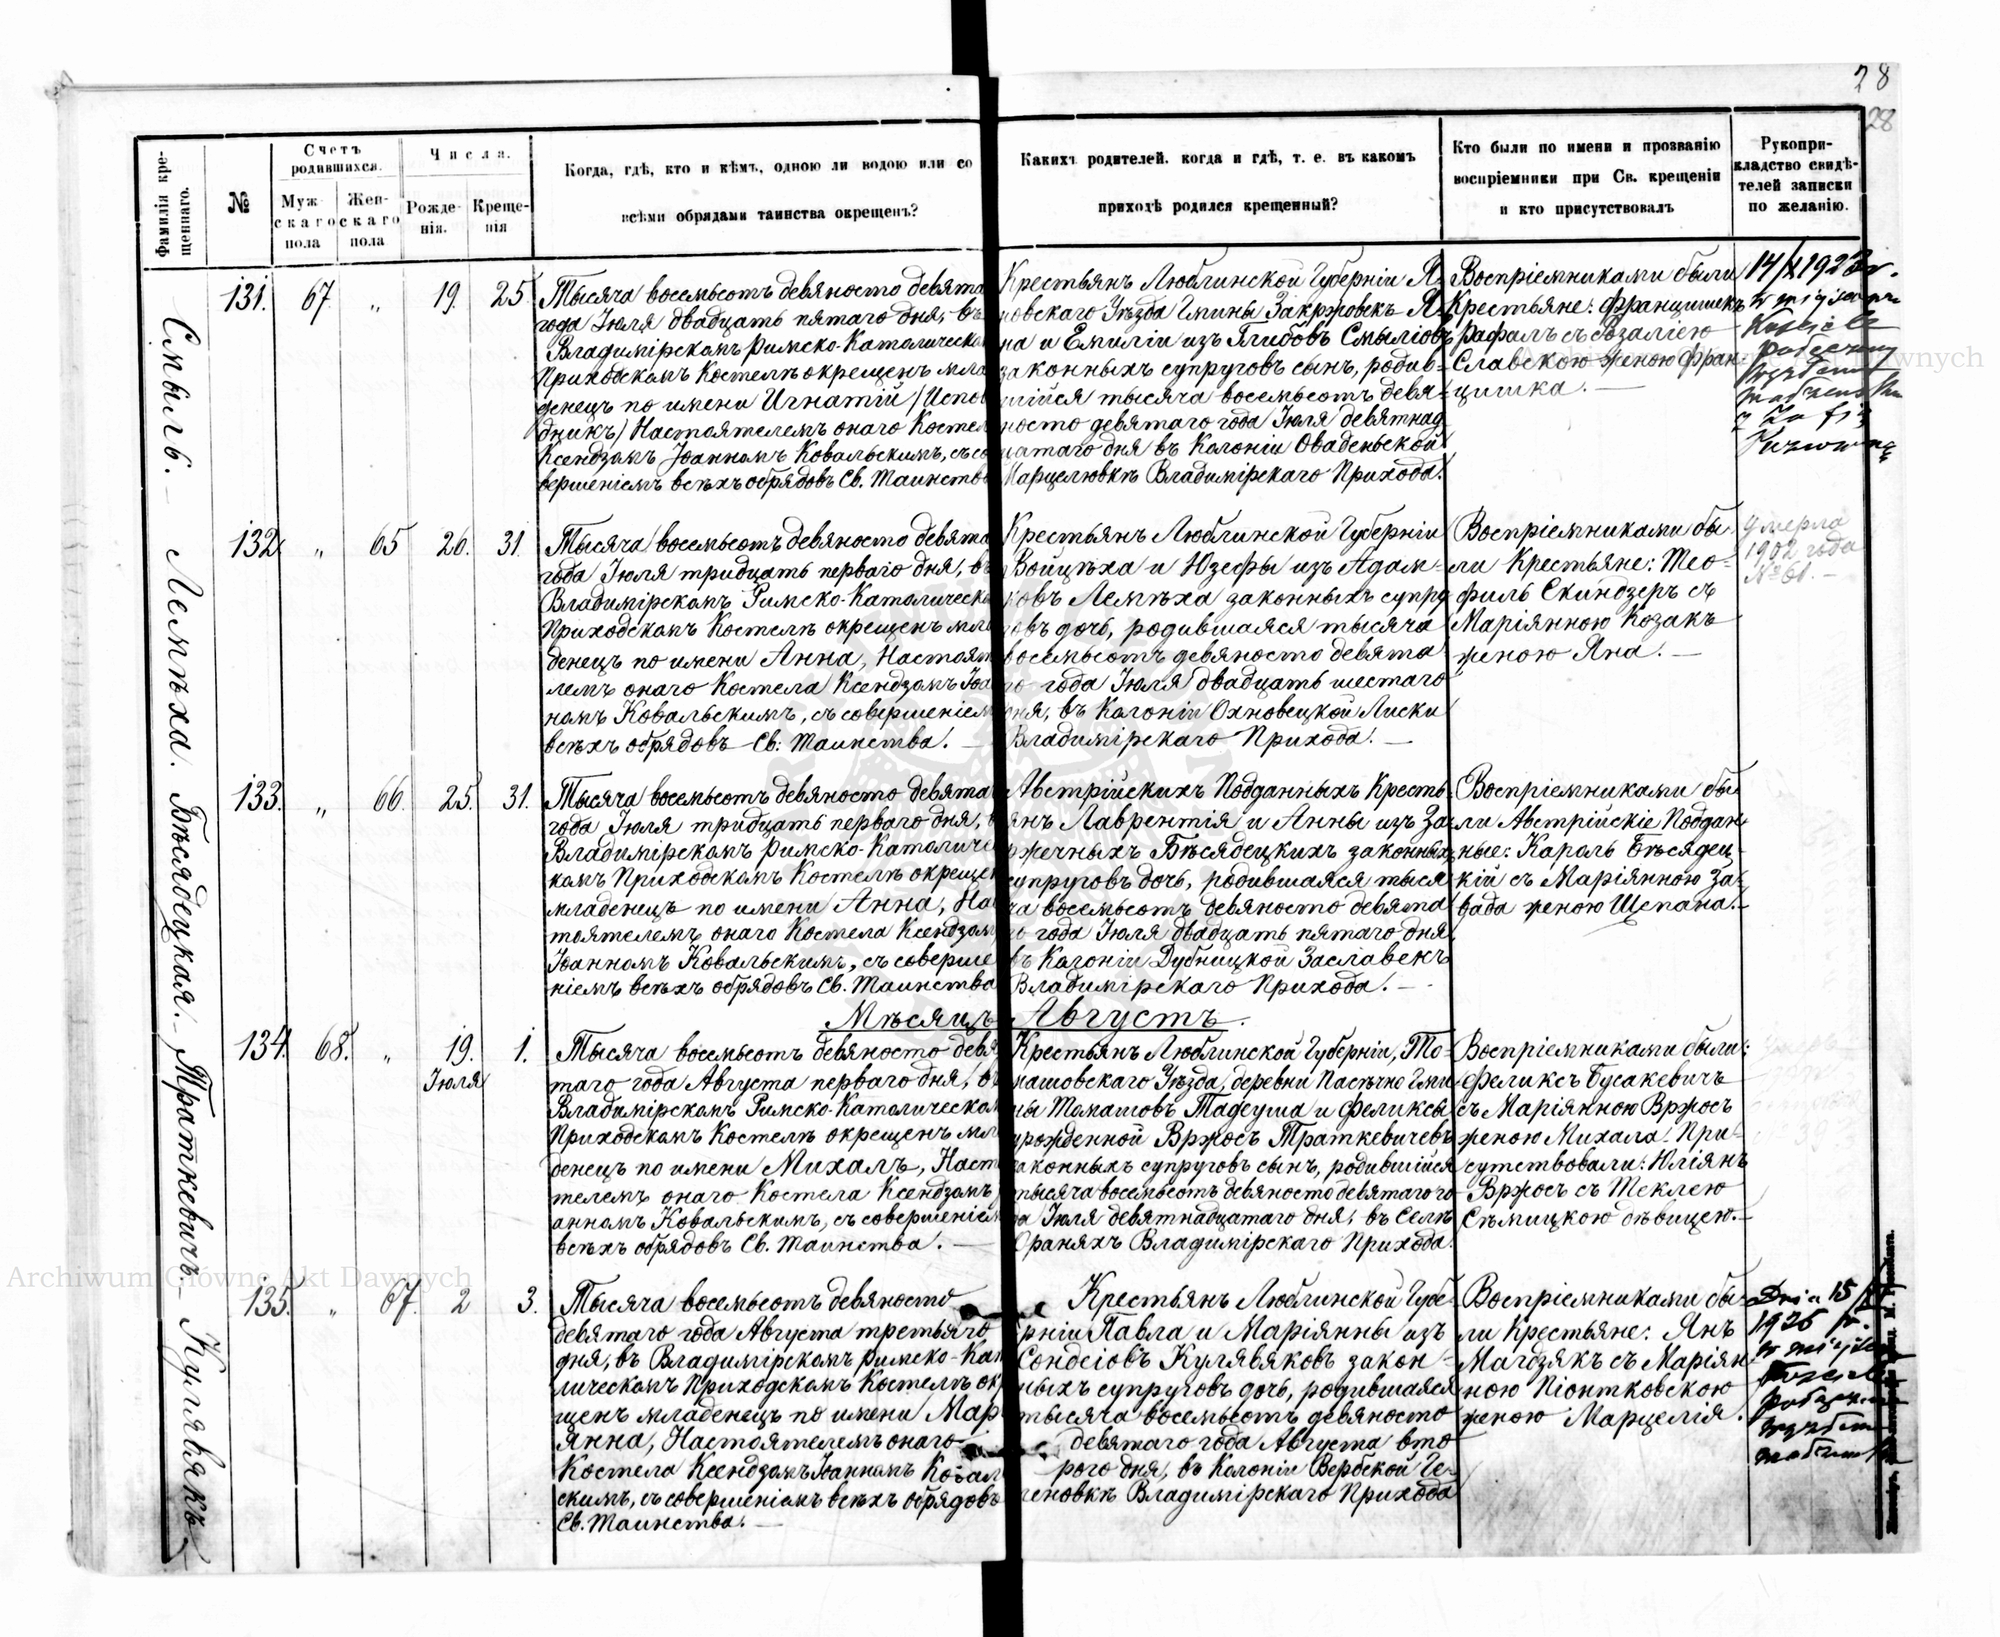 28
28
Фамилія кре-
щеннаго.
№
Счетъ
родившихся.
Муж-
скаго
пола
Жен-
скаго
пола
Числа.
Рожде-
нія.
Креще-
нія
Когда, гдѣ, кто и кѣмъ, одною ли водою или со
всѣми обрядами таинства окрещенъ?
Какихъ родителей, когда и гдѣ, т. е. въ какомъ
приходѣ родился крещенный?
Кто были по имени и прозванію
воспріемники при Св. крещеніи
и кто присутствовалъ
Рукопри-
кладство свидѣ-
телей записки
по желанію.
Смыль.
131. 67. „ 19. 25.
Тысяча восемьсотъ девяносто девята
года Іюля двадцать пятаго дня, въ
Владимірскомъ Римско-Католическо
Приходскомъ Костелѣ окрещенъ мла
денецъ по имени Игнатій (Испов
дникъ) Настоятелемъ онаго Костел
Ксендзомъ Іоанномъ Ковальскимъ, съ со
вершеніемъ всѣхъ обрядовъ Св. Таинства
Крестьянъ Люблинской Губерніи Я-
новскаго Уѣзда Гмины Закржовекъ Я-
на и Емиліи изъ Глибовъ Смыліовъ
законныхъ супруговъ сынъ, родив-
шійся тысяча восемьсотъ девя-
носто девятаго года Іюля девятнад
цатаго дня въ Колоніи Оваденьской
Марцелювкѣ Владимірскаго Прихода.
Воспріемниками были
Крестьяне: Францишекъ
Рафалъ съ Розаліею
Славскою женою Фран-
цишка. —
14/X 1923 r.
w miejscowym
Kościele
pobrany
węzłem
małżeńskim
z Zofią
Лемѣха.
132. „ 65 26. 31.
Тысяча восемьсотъ девяносто девята
года Іюля тридцать перваго дня, въ
Владимірскомъ Римско-Католическо
Приходскомъ Костелѣ окрещенъ мла
денецъ по имени Анна, Настоят
лемъ онаго Костела Ксендзомъ Іоа
номъ Ковальскимъ, съ совершеніем
всѣхъ обрядовъ Св. Таинства. —
Крестьянъ Люблинской Губерніи
Войцѣха и Юзефы изъ Адам-
ковъ Лемѣха законныхъ супру
овъ дочь, родившаяся тысяча
восемьсотъ девяносто девята
го года Іюля двадцать шестаго
дня, въ Колоніи Охновецкой Лиски
Владимірскаго Прихода. —
Воспріемниками бы-
ли Крестьяне: Тео-
филь Скиндзеръ съ
Маріянною Козакъ
женою Яна. —
Умерла
1902 года
№ 61. —
Бѣсядецкая.
133. „ 66. 25. 31.
Тысяча восемьсотъ девяносто девята
года Іюля тридцать перваго дня, в
Владимірскомъ Римско-Католичес
комъ Приходскомъ Костелѣ окрещен
младенецъ по имени Анна, Нас
тоятелемъ онаго Костела Ксендзом
Іоанномъ Ковальскимъ, съ соверше
ніемъ всѣхъ обрядовъ Св. Таинства
Австрійскихъ Подданныхъ Кресть-
янъ Лаврентія и Анны изъ За-
ржечныхъ Бѣсядецкихъ законных
супруговъ дочь, родившаяся тыся
ча восемьсотъ девяносто девята
го года Іюля двадцать пятаго дня
въ Колоніи Дубницкой Заславекъ
Владимірскаго Прихода. —
Воспріемниками бы
ли Австрійскіе Поддан
ные: Кароль Бѣсядец-
кій съ Маріянною За-
вада женою Щепана. —
Мѣсяцъ Августъ.
Траткевичъ
134. 68. „ 19. 1.
Іюля
Тысяча восемьсотъ девяносто девя
таго года Августа перваго дня, въ
Владимірскомъ Римско-Католическом
Приходскомъ Костелѣ окрещенъ мла
денецъ по имени Михалъ, Настоя
телемъ онаго Костела Ксендзомъ
анномъ Ковальскимъ, съ совершеніем
всѣхъ обрядовъ Св. Таинства. —
Крестьянъ Люблинской Губерніи, То-
машовскаго Уѣзда, деревни Пасѣчно Гми
ны Томашовъ Тадеуша и Феликсы
урожденной Вржосъ Траткевичевъ
законныхъ супруговъ сынъ, родившійся
тысяча восемьсотъ девяносто девятаго го
да Іюля девятнадцатаго дня, въ Селѣ
Ораняхъ Владимірскаго Прихода.
Воспріемниками были:
Феликсъ Бусакевичъ
съ Маріянною Вржосъ
женою Михала. При-
сутствовали: Юліянъ
Вржосъ съ Теклею
Сѣмицкою дѣвицею. —
Кулявякъ
135. „ 67. 2 3.
Тысяча восемьсотъ девяносто
девятаго года Августа третьяго
дня, въ Владимірскомъ Римско-Кат
лическомъ Приходскомъ Костелѣ ок
щенъ младенецъ по имени Мар
янна, Настоятелемъ онаго
Костела Ксендзомъ Іоанномъ Ковал
скимъ, съ совершеніемъ всѣхъ обрядовъ
Св. Таинства. —
Крестьянъ Люблинской Губе-
рніи Павла и Маріянны изъ
Сондеіовъ Кулявяковъ закон-
ныхъ супруговъ дочь, родившаяся
тысяча восемьсотъ девяносто
девятаго года Августа вто
рого дня, въ Колоніи Вербской Ге-
леновкѣ Владимірскаго Прихода
Воспріемниками бы-
ли Крестьяне: Янъ
Магдзякъ съ Маріян-
ною Піонтковскою
женою Марцелія.
Dnia 15/
1926 r.
w miejsc
Kościele
pobrana
węzłem
małżeńsk
Archiwum Główne Akt Dawnych